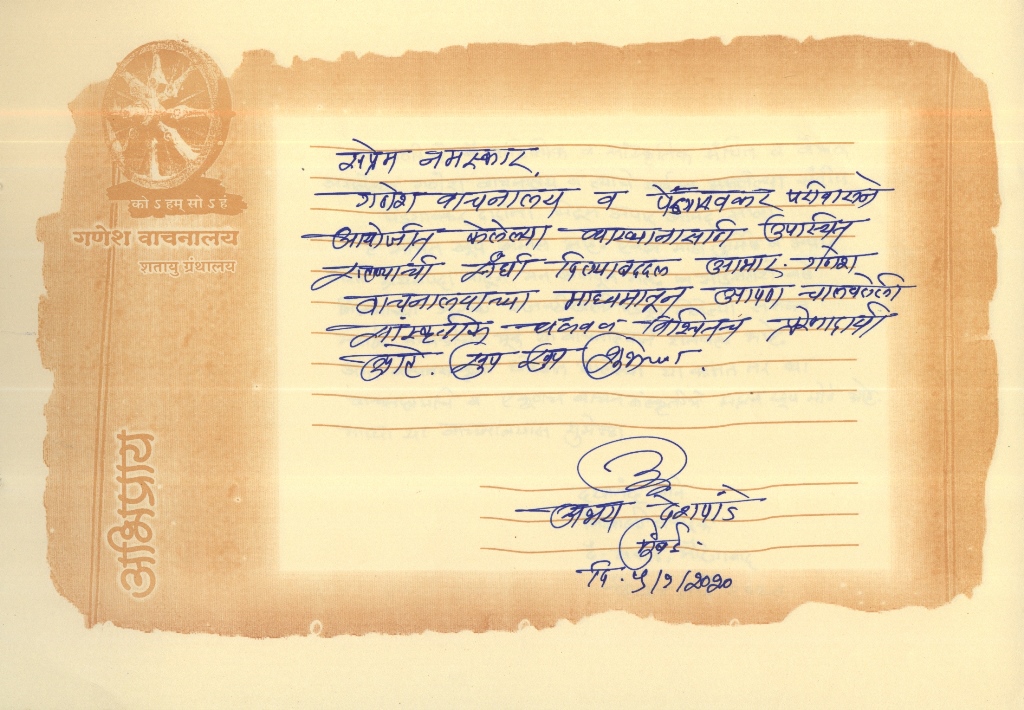 को ऽ हम् सो ऽ हं
गणेश वाचनालय
शतायु ग्रंथालय
अभिप्राय
सप्रेम नमस्कार,
गणेश वाचनालय व परिवाराने
आयोजीत केलेल्या व्याख्यानासाठी उपस्थित
राहण्याची संधी दिल्याबद्दल आभार. गणेश
वाचनालयाच्या माध्यमातून आपण चालवलेली
सांस्कृतिक चळवळ निश्चितच प्रेरणादायी
आहे. खुप खुप शुभेच्छा.
अभय देशपांडे
मुंबई.
दि. ५/१/२०२०